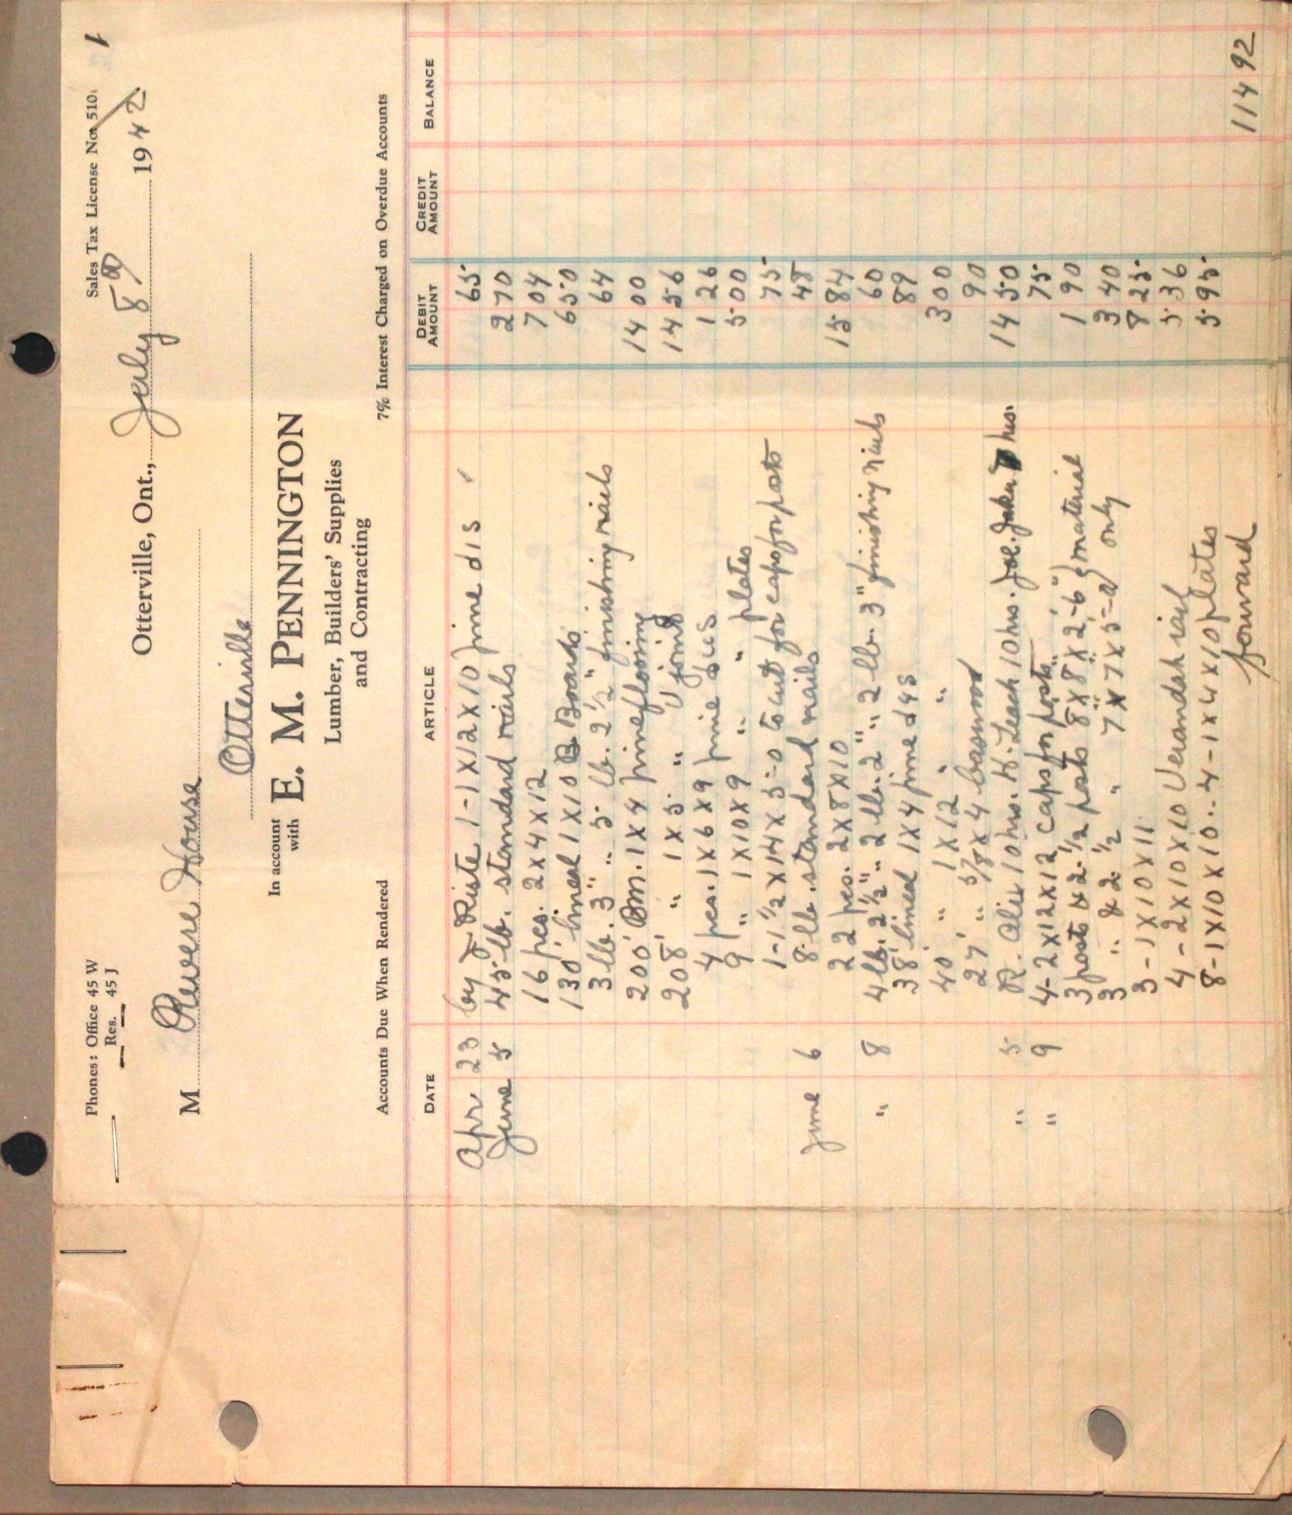 Phones: Office 45 W
Res. 45 J
Sales Tax License No. 510.
1
Otterville, Ont., July 8th 1942
M Revere House
Otterville
In account with E. M. PENNINGTON
Lumber, Builders' Supplies
and Contracting
Accounts Due When Rendered 7% Interest Charged on Overdue Accounts
DATE ARTICLE DEBIT AMOUNT CREDIT AMOUNT BALANCE
Apr 23 by J. Riste 1-1x12x10 pine d1s 65
June 5 45 lb. standard nails 2 70
16 pcs. 2x4x12 7 04
130' lineal 1x10 B. Boards 6 50
3 lb. 3" .. 5 lb. 2½" finishing nails 64
200' Bm. 1x4 pine flooring 14 00
208' " 1x5 " " joint 14 56
4 pcs. 1x6x9 pine 1 26
9 " 1x10x9 " " plates 5 00
1-1½x14x5-0 to cut for caps for posts 75
June 6 8 lb. standard nails 48
22 pcs. 2x8x10 15 84
" 8 4 lb. 2½" .. 2 lb. 2" .. 2 lb. 3" finishing nails 60
38' lineal 1x4 pine d4s 89
40' " 1x12 " " 3 00
27' " 5/8x4 basswood 90
" 5 R. Alie 10 hrs. H. Leach 10 hrs. Joe. hrs. 14 50
" 9 4-2x12x12 caps for posts 75
3 posts & 2-½ posts 8"x8"x2'-6" } material 1 90
3 " & 2 ½ " 7"x7"x5'-0 } only 3 40
3-1x10x11 8 25
4-2x10x10 Verandah rail 5 36
8-1x10x10..4-1x4x10 plates 5 95
forward 114 92